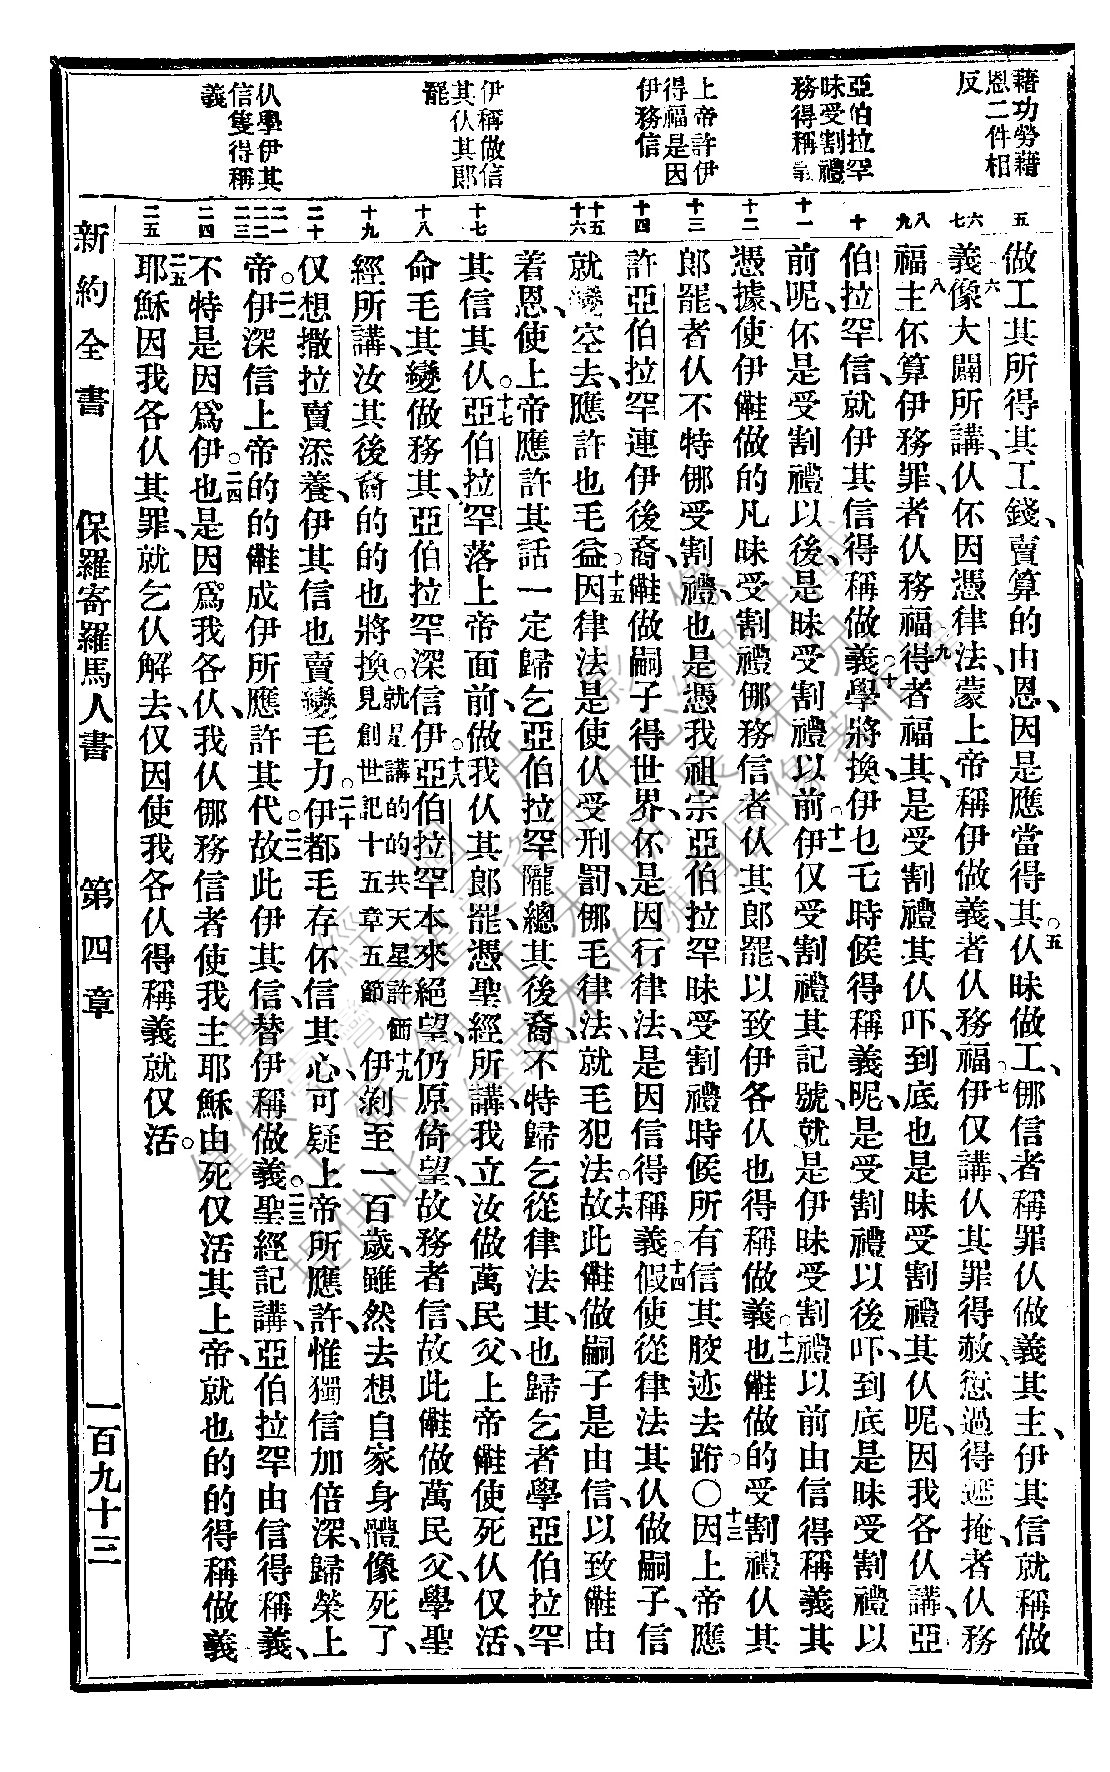 藉功勞藉
恩二件相
反
亞伯拉罕
昧受割禮
務得稱義
上帝許伊
得福是因
伊務信
伊稱做信
其仈其郎
罷
仈學伊其
信隻得稱
義
五
六
七
八
九
十
十一
十二
十三
十四
十五
十六
十七
十八
十九
二十
二一
二二
二三
二四
二五
做工其所得其工錢、賣算的由恩、因是應當得其。五仈昧做工、㑚信者稱罪仈做義其主、伊其信就稱做
義。六像大闢所講、仈伓因憑律法、蒙上帝稱伊做義、者仈務福、伊仅講、七仈其罪得赦、愆過得遮掩、者仈務
福、八主伓算伊務罪、者仈務福。九得者福其、是受割禮其仈吓、到底也是昧受割禮其仈呢、因我各仈講、亞
伯拉罕信、就伊其信得稱做義。十學將換、伊乜乇時候得稱義呢、是受割禮以後吓、到底是昧受割禮以
前呢、伓是受割禮以後、是昧受割禮以前。十一伊仅受割禮其記號、就是伊昧受割禮以前、由信得稱義其
憑據、使伊做的凡昧受割禮㑚務信者仈其郎罷、以致伊各仈也得稱做義。十二也做的受割禮仈其
郎罷、者仈不特㑚受割禮、也是憑我祖宗亞伯拉罕昧受割禮時候、所有信其腳迹去跡。○十三因上帝應
許亞伯拉罕連伊後裔、做嗣子得世界、伓是因行律法、是因信得稱義。十四假使從律法其仈做嗣子、信
就變空去、應許也毛益。十五因律法是使仈受刑罰、㑚毛律法、就毛犯法。十六故此做嗣子是由信、以致由
着恩、使上帝應許其話、一定歸乞亞伯拉罕隴總其後裔、不特歸乞從律法其、也歸乞者學亞伯拉罕
其信其仈。十七亞伯拉罕落上帝面前、做我仈其郎罷、憑聖經所講、我立汝做萬民父、上帝使死仈仅活、
命毛其變做務其、亞伯拉罕深信伊。十八亞伯拉罕本來絕望、仍原倚望、故務者信、故此做萬民父、學聖
經所講、汝其後裔的的也將換。就是講的的共天星許価見創世記十五章五節十九伊洌至一百歲、雖然去想自家身體像死了、
仅想撒拉賣添養、伊其信也賣變毛力。二十伊都毛存伓信其心可疑上帝所應許、惟獨信加倍深、歸榮上
帝。二一伊深信上帝的的成伊所應許其代。二二故此伊其信、替伊稱做義。二三聖經記講、亞伯拉罕由信得稱義、
不特是因爲伊、二四也是因爲我各仈、我仈㑚務信者使我主耶穌由死仅活其上帝、就也的的得稱做義。
二五耶穌因我各仈其罪、就乞仈解去、仅因使我各仈得稱義、就仅活。
新約全書　保羅寄羅馬人書　第四章　一百九十三